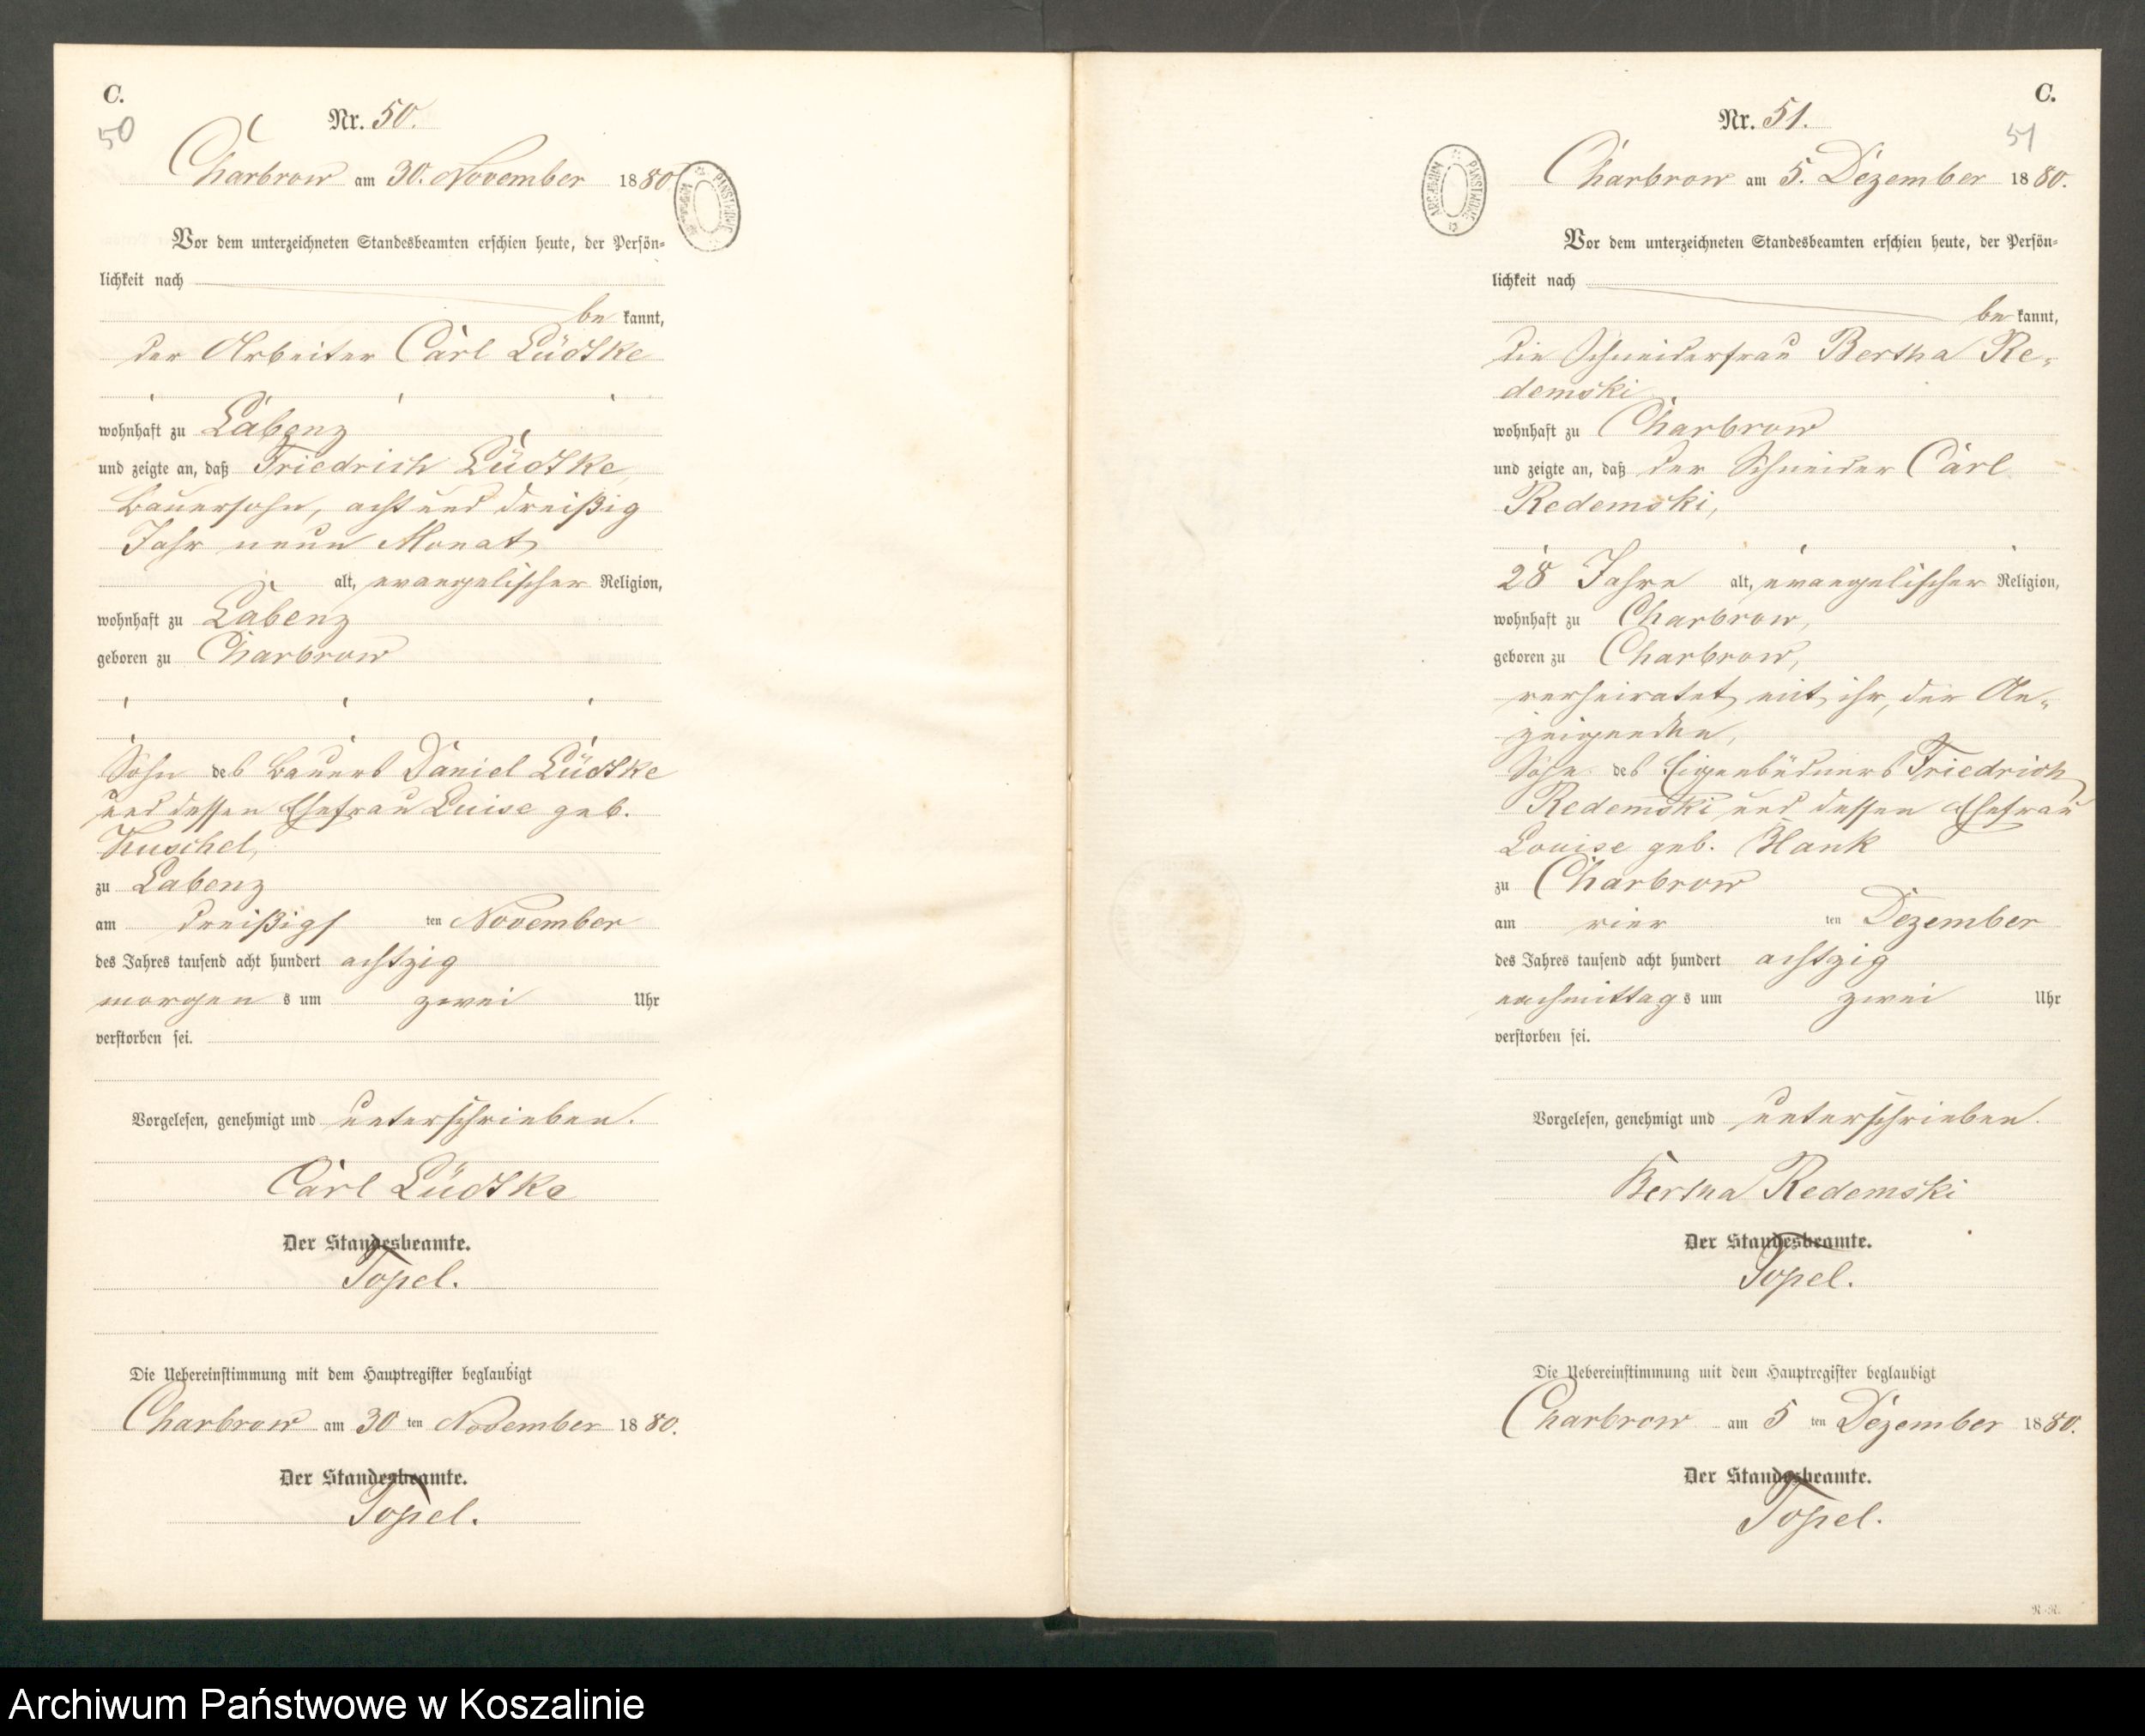 C.
50
Nr. 50.
Charbrow am 30. November 1880
ARCHIWUM PAŃSTWOWE
Vor dem unterzeichneten Standesbeamten erschien heute, der Persön=
lichkeit nach
be kannt,
der Arbeiter Carl Lüdtke
wohnhaft zu Labenz
und zeigte an, daß Friedrich Lüdtke,
Bauersohn, acht und dreißig
Jahr neun Monat
alt, evangelischer Religion,
wohnhaft zu Labenz
geboren zu Charbrow
Sohn des Bauers Daniel Lüdtke
und dessen Ehefrau Luise geb.
Kuschel,
zu Labenz
am dreißigs ten November
des Jahres tausend acht hundert achtzig
morgen s um zwei Uhr
verstorben sei.
Vorgelesen, genehmigt und unterschrieben.
Carl Lüdtke
Der Standesbeamte.
Topel.
Die Uebereinstimmung mit dem Hauptregister beglaubigt
Charbrow am 30 ten November 1880.
Der Standesbeamte.
Topel.
C.
51
Nr. 51.
Charbrow am 5. Dezember 1880.
ARCHIWUM PAŃSTWOWE
Vor dem unterzeichneten Standesbeamten erschien heute, der Persön=
lichkeit nach
be kannt,
die Schneiderfrau Bertha Re=
demski
wohnhaft zu Charbrow
und zeigte an, daß der Schneider Carl
Redemski,
28 Jahre alt, evangelischer Religion,
wohnhaft zu Charbrow,
geboren zu Charbrow,
verheiratet mit ihr, der An=
zeigenden,
Sohn des Eigenbüdners Friedrich
Redemski und dessen Ehefrau
Louise geb. Hank
zu Charbrow
am vier ten Dezember
des Jahres tausend acht hundert achtzig
nachmittag s um zwei Uhr
verstorben sei.
Vorgelesen, genehmigt und unterschrieben.
Bertha Redemski
Der Standesbeamte.
Topel.
Die Uebereinstimmung mit dem Hauptregister beglaubigt
Charbrow am 5 ten Dezember 1880.
Der Standesbeamte.
Topel.
Archiwum Państwowe w Koszalinie